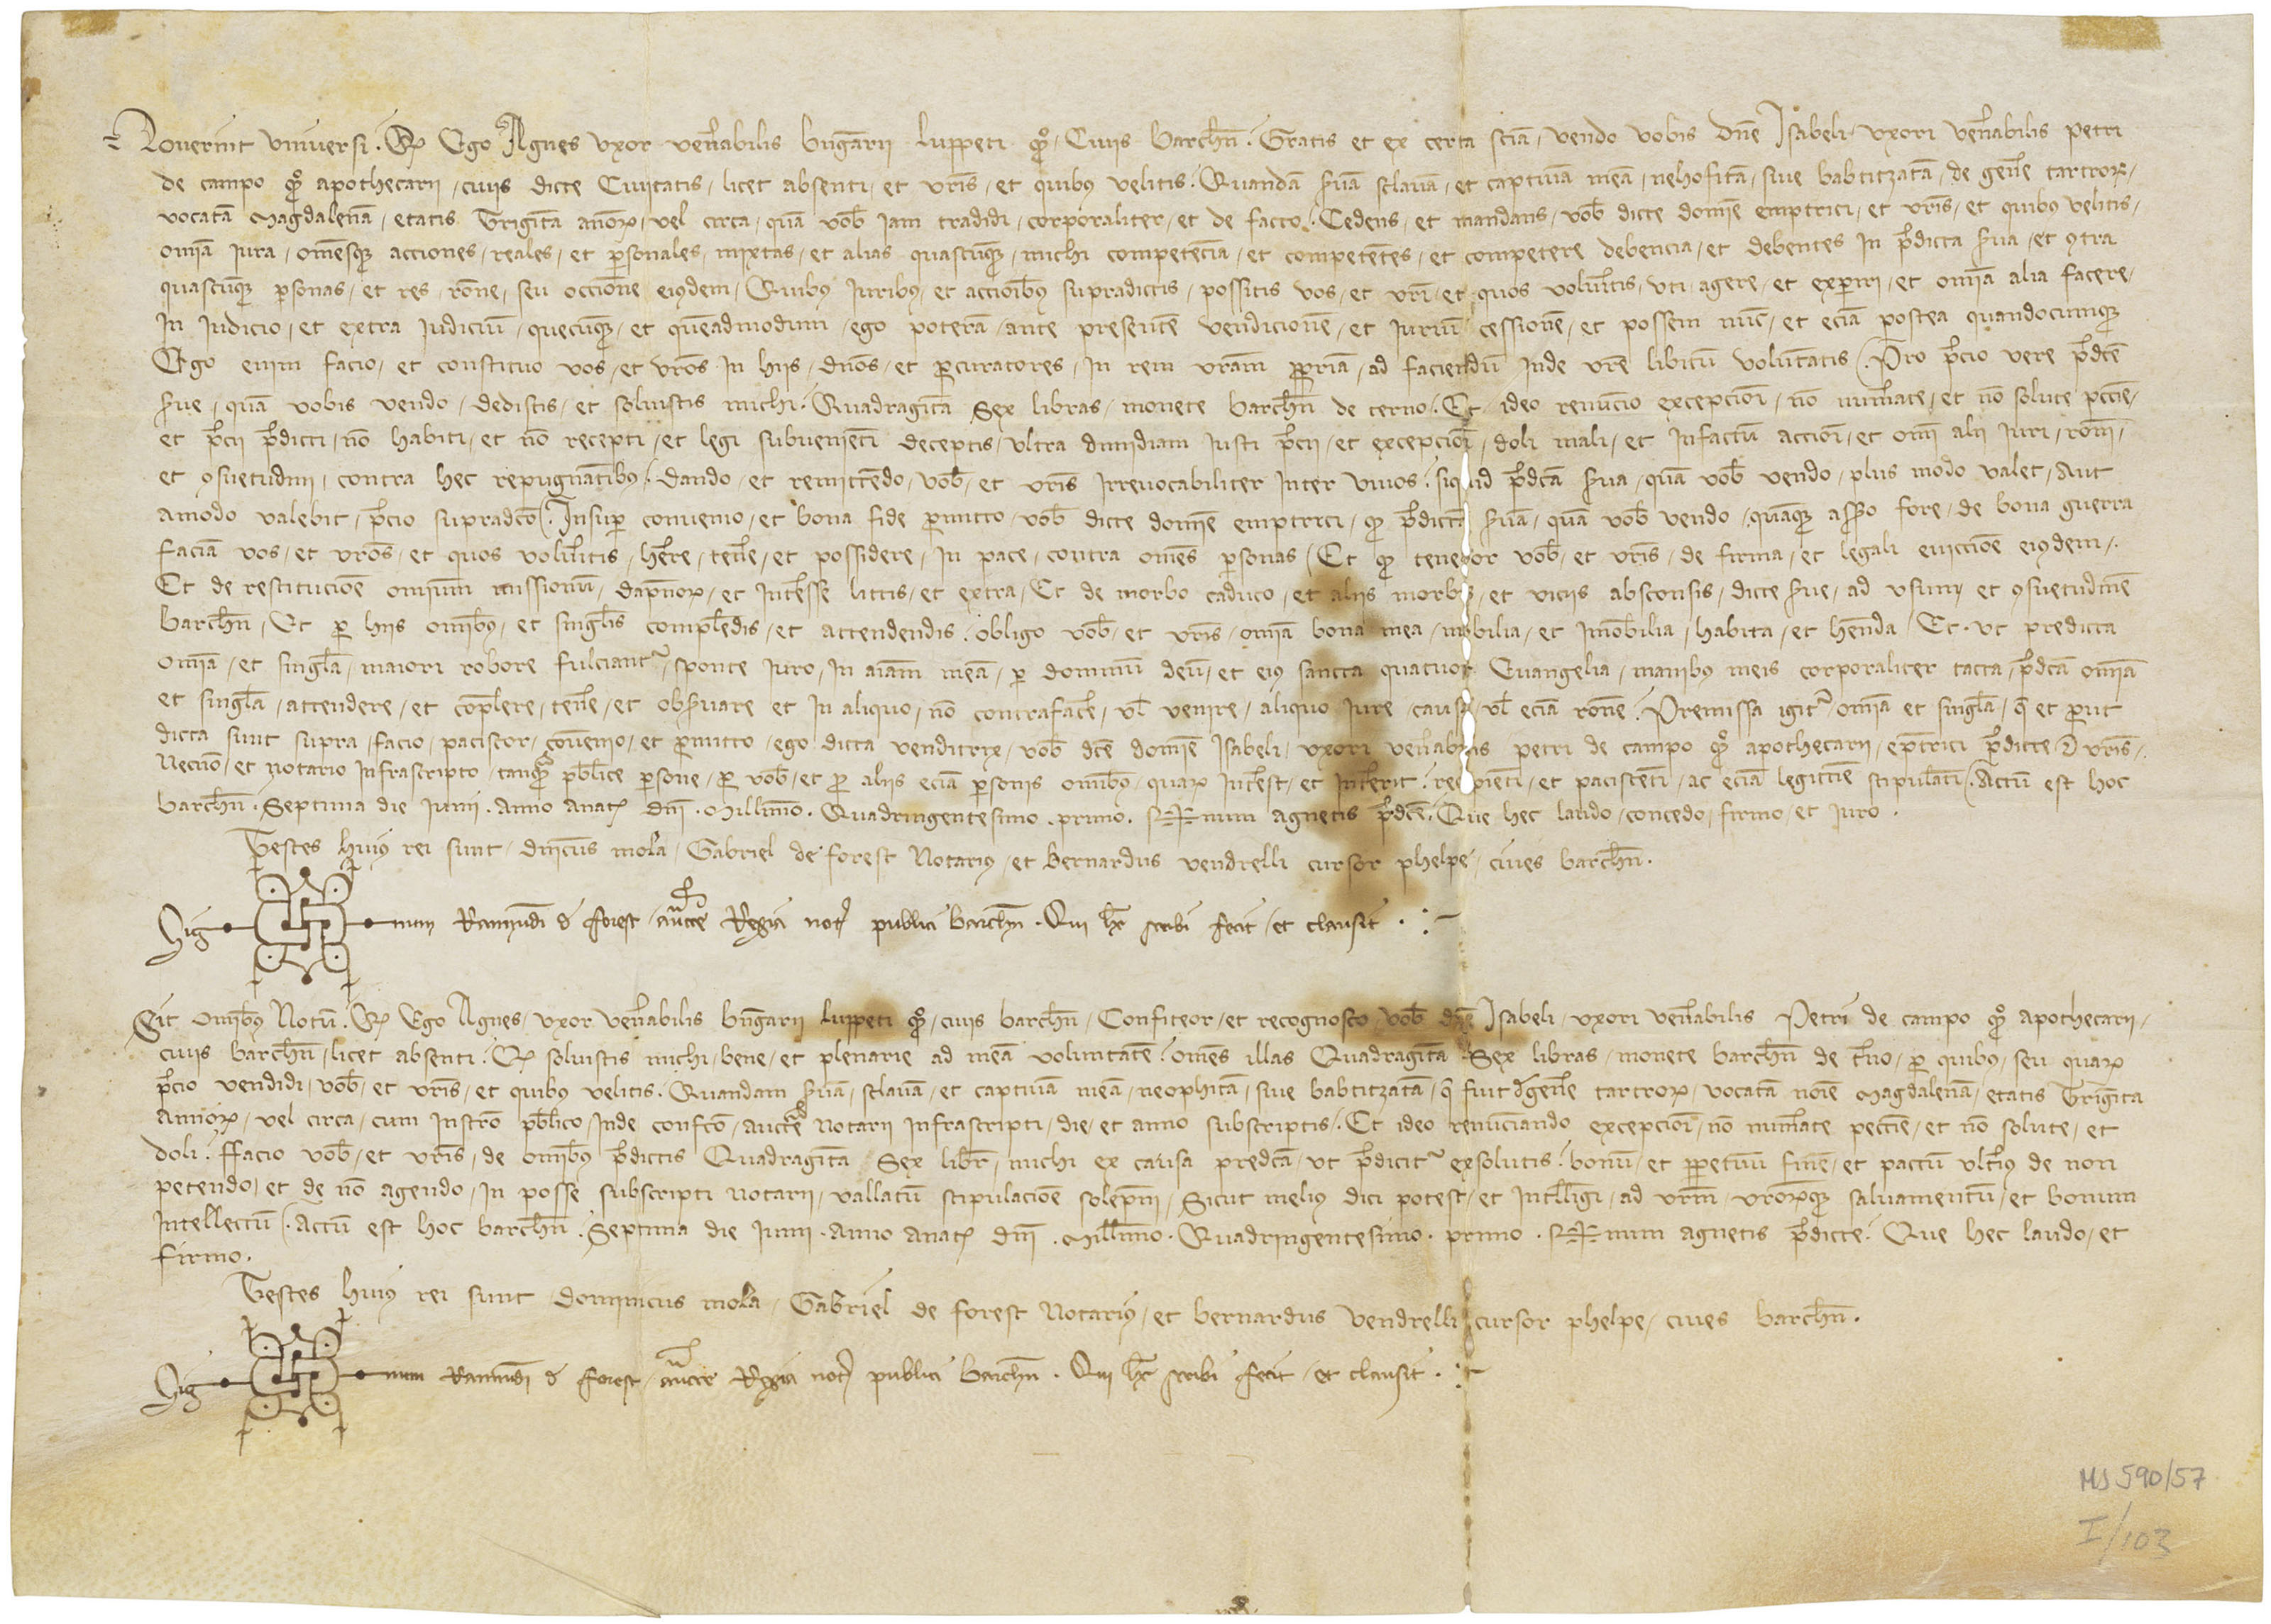 Noverint universi. Qd Ego Agnes uxor ven̄abilis bn̄garii luppeti qͦ. Civis barchn̄. Gratis et ex certa sciā, vendo vobis dn̄e Isabeli uxori ven̄abilis petri
de campo qͦ apothecarii, civis dicte Civitatis, licet absenti, et vr̄is, et quibꝰ velitis. Quandā svā sclavā, et captivā meā, nehofitā, sive babtitzatā, de gen̄e tartroꝝ,
vocatā Magdalenā, etatis Trigīta an̄oꝝ, vel circa, quā vob̄ iam tradidi, corporaliter, et de facto. Cedens, et mandans, vob̄ dicte domīe emptrici, et vr̄is, et quibꝰ velitis,
om̄ia iura, om̄esqꝫ acciones, reales, et ꝑsonales, mixtas, et alias quascūqꝫ, michi competēcia, et competētes, et competere debencia, et debentes in p̄dicta sva, et ꝯtra
quascūqꝫ ꝑsonas, et res, rōne, seu occiōne eiꝰdem, Quibꝰ iuribꝰ, et acciōibꝰ supradictis, possitis vos, et vr̄i, et quos volūitis, uti agere, et exꝑiri, et om̄ia alia facere,
in iudicio, et extra iudiciū, quecūqꝫ, et quēadmodum, ego poterā, ante presentē vendicionē, et iuriū cessionē, et possem nūc, et eciā postea quandocumqꝫ
Ego enim facio, et constituo vos, et vr̄os in hiis, dn̄os, et ꝓcuratores, in rem vr̄am ꝓpriā, ad faciendū inde vr̄e libitū volūtatis. Pro p̄cio vere p̄dc̄e
sve, quā vobis vendo, dedistis, et solvistis michi. Quadragīta Sex libras, monete barchn̄ de terno. Et ideo renūcio excepcioī, nō num̄ate, et nō solute peccīe,
et p̄cii p̄dicti, nō habiti, et nō recepti, et legi subvenienti deceptis, ultra dimidiam iusti p̄cii, et excepcioī, doli mali, et infactū accioī, et om̄i alii iuri, rōni,
et ꝯsuetudini, contra hec repugnātibꝰ. Dando, et remittēdo, vob̄, et vr̄is irrevocabiliter inter vivos. siquid p̄dc̄a sva, quā vob̄ vendo, plus modo valet, aut
amodo valebit, p̄cio supradc̄o. Insuꝑ convenio, et bona fide ꝓmitto, vob̄ dicte domīe emptrici, qd p̄dictā svā, quā vob̄ vendo, quāqꝫ assero fore, de bona guerra
faciā vos, et vr̄os, et quos volūitis, hēre, ten̄e, et possidere, in pace, contra om̄es ꝑsonas. Et qd teneor vob̄, et vr̄is, de firma, et legali eviccione eiꝰdem.
Et de restitucione omniū missionū, dapnoꝝ, et int̄esse littis, et extra, Et de morbo caduco, et aliis morbis, et viciis absconsis, dicte sve, ad usum, et ꝯsuetudinē
barchn̄. Et ꝓ hiis om̄ibꝰ, et singlis complēdis, et attendendis. obligo vob̄, et vr̄is, om̄ia bona mea, mobilia, et imobilia, habita, et hēnda. Et ut predicta
om̄ia, et singla, maiori robore fulciantᷣ, sponte iuro, in aīam meā, ꝑ dominū deū, et eiꝰ sancta quatuor Evangelia, manibꝰ meis corporaliter tacta, p̄dc̄a om̄ia
et singla, attendere, et cōplere, ten̄e, et observare et in aliquo, nō contrafac̄e, vl̄ venire, aliquo iure causa vl̄ eciā rōne. Premissa igitᷣ om̄ia et singla, q̄ et ꝓut
dicta sunt supra, facio, paciscor, cōvenio, et ꝓmitto, ego dicta venditrix, vob̄ dc̄e domīe Isabeli, uxori ven̄abilis petri de campo qͦ apothecarii, ēptrici p̄dicte ⁊ vr̄is.
Necnō, et notario infrascripto, tanqꝫ pb̄lice ꝑsone, ꝓ vob̄, et ꝓ aliis eciā ꝑsonis om̄ibꝰ, quaꝝ int̄est, et int̄erit. recipienti, et paciscēti, ac eciā legittīe stipulāti. Actū est hoc
barchn̄. Septima die iunii. Anno anatꝭ dn̄i. Millīmo. Quadringentesimo. primo. S✠num agnetis p̄dc̄e. Que hec laudo, concedo, firmo, et iuro.
Testes huiꝰ rei sunt, dn̄icus mola, Gabriel de forest Notariꝰ, et bernardus vendrelli cursor phelpe, cives barchn̄.
Sig num Raimūdi de forest, auctē Regia notꝭ publici barchn̄. Qui hēc scribi fecit, et clausit.
Sit om̄ibꝰ Notū. Qd Ego Agnes, uxor ven̄abilis bn̄garii luppeti qͦ, civis barchn̄, Confiteor, et recognosco vob̄ dn̄e Isabeli, uxori ven̄abilis Petri de campo qͦ apothecarii,
civis barchn̄, licet absenti. Qd solvistis michi, bene, et plenarie ad meā voluntatē. om̄es illas Quadragīta Sex libras, monete barchn̄ de t̄no, ꝓ quibꝰ, seu quaꝝ
p̄cio vendidi, vob̄, et vr̄is, et quibꝰ velitis. Quandam svā, sclavā, et captivā meā, neophitā, sive babtitzatā, q̄ fuit de gen̄e tartroꝝ, vocatā noīe Magdalenā, etatis Trigīta
Annoꝝ, vel circa, cum instr̄o pb̄lico, inde confc̄o, auctē Notarii infrascripti, die, et anno subscriptis. Et ideo renūciando excepcioī, nō num̄ate peccīe, et nō solute, et
doli. ffacio vob̄, et vr̄is, de om̄ibꝰ p̄dictis Quadragīta Sex libr̄, michi ex causa predc̄a, ut p̄dicitᷣ exsolutis. bonū, et ꝑpetuū finē, et pactū ult̄iꝰ de non
petendo, et de nō agendo, in posse subscripti notarii, vallatū stipulacione solēpni, Sicut meliꝰ dici potest, et intelligi, ad vr̄m, vr̄oꝝqꝫ salvamentū, et bonum
intellectū. Actū est hoc barchn̄. Septima die iunii. Anno anatꝭ dn̄i. Millīmo. Quadringentesimo. primo. S✠num agnetis p̄dicte. Que hec laudo, et
firmo.
Testes huiꝰ rei sunt, dominicus mola, Gabriel de forest Notariꝰ, et bernardus vendrelli cursor phelpe, cives barchn̄.
Sig num Raimūdi de forest, auctē Regia notꝭ publici barchn̄. Qui hēc scribi fecit, et clausit.
MS 590/57
I/103